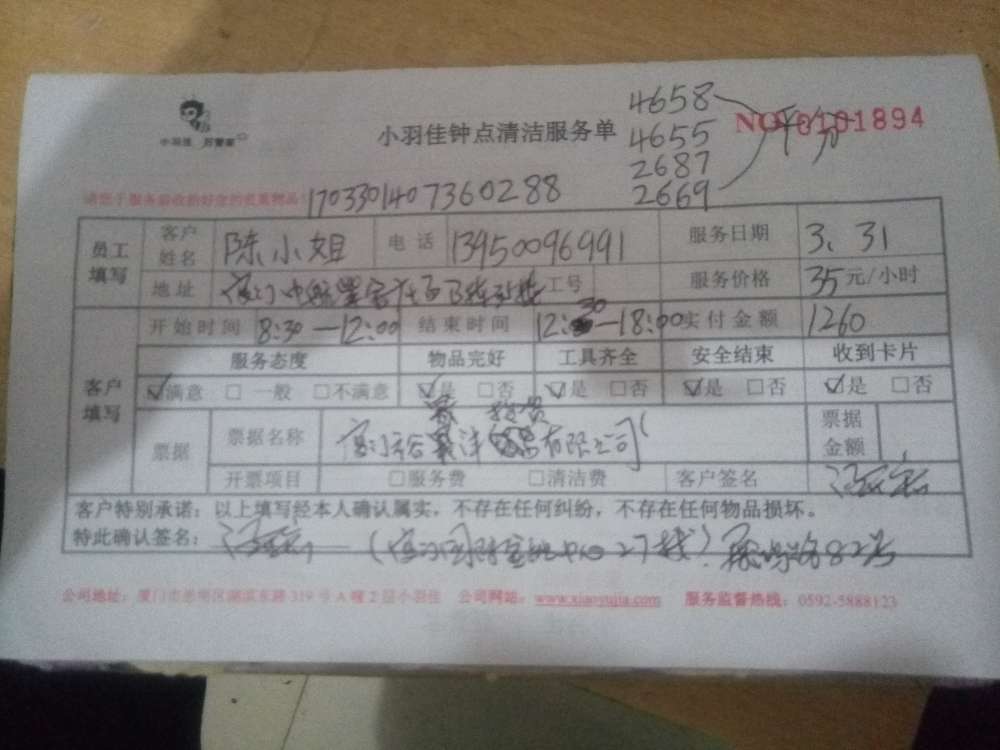 小羽佳 万管家
小羽佳钟点清洁服务单
NO 0101894
4658
4655
2687
2669
平分
请您于服务前收拾好您的贵重物品!
170330140736 0288
员工填写 客户姓名 陈小姐 电话 13950096991 服务日期 3、31
地址 厦门 工号 服务价格 35元/小时
客户填写 开始时间 8:30—12:00 结束时间 12:30—18:00 实付金额 1260
服务态度 物品完好 工具齐全 安全结束 收到卡片
☑满意 □一般 □不满意 ☑是 □否 ☑是 □否 ☑是 □否 ☑是 □否
票据 票据名称 厦门 有限公司 票据金额
开票项目 □服务费 □清洁费 客户签名
客户特别承诺:以上填写经本人确认属实,不存在任何纠纷,不存在任何物品损坏。
特此确认签名: (厦门国际 中心 27楼) 82号
公司地址:厦门市思明区湖滨东路319号A幢2层小羽佳 公司网站:www.xiaoyujia.com 服务监督热线:0592-5888123